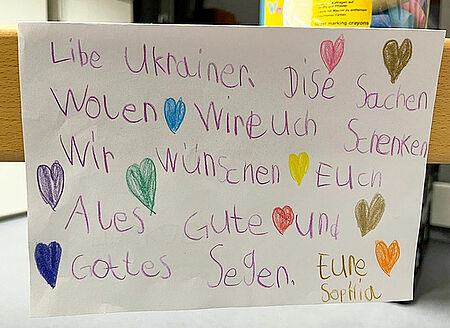 Most marking crayons
Libe Ukrainer. Dise Sachen
Wolen Wir euch Schenken
Wir wünschen Euch
Ales Gute und
Gottes Segen. Eure
Sophia